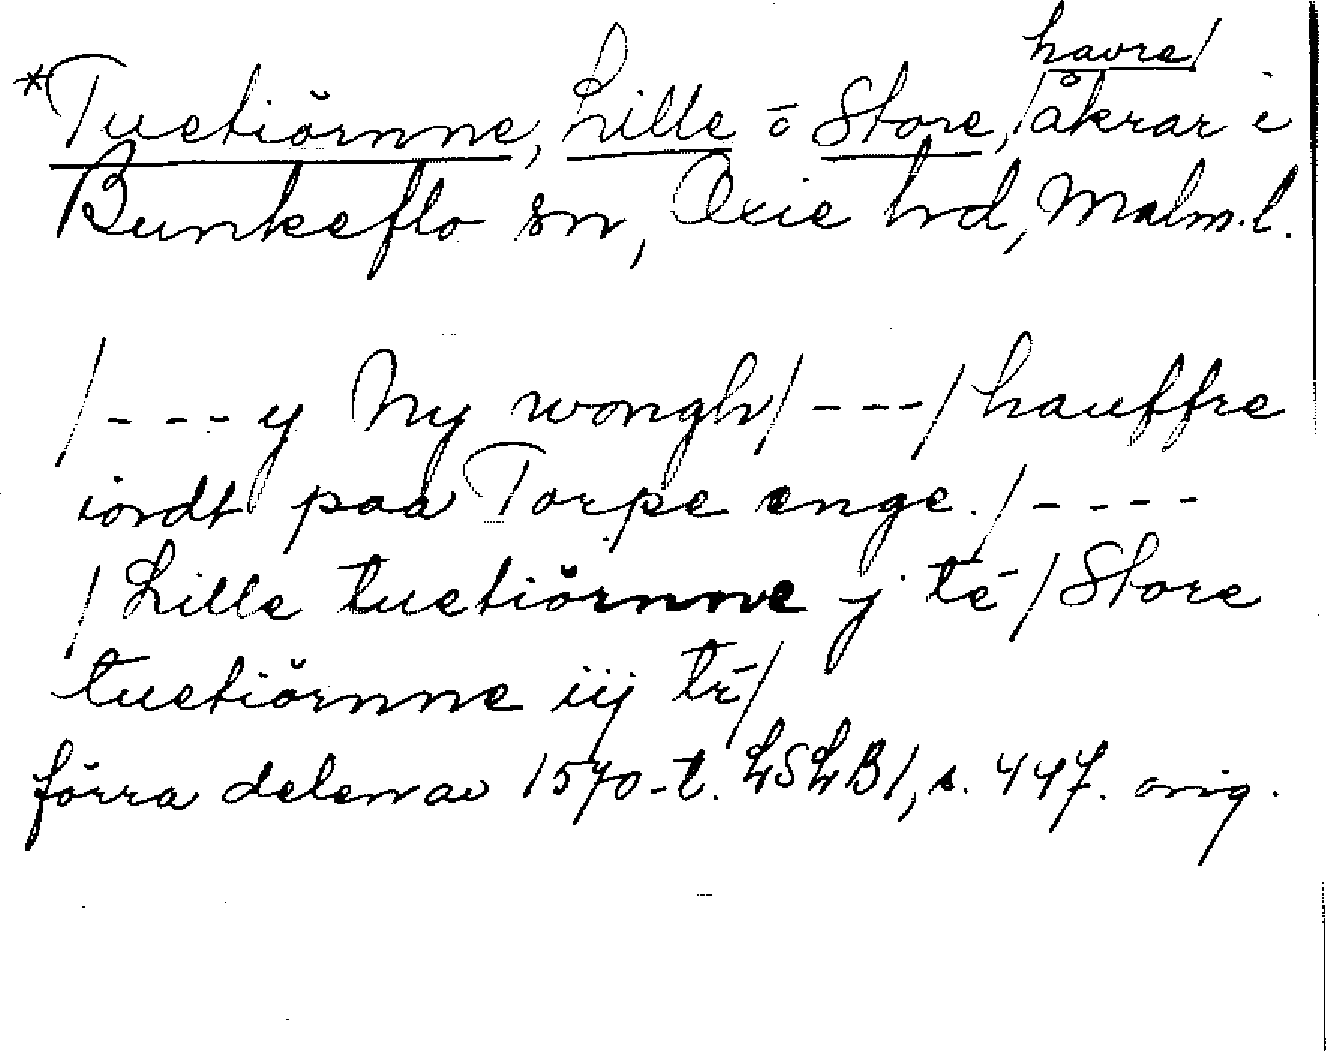 havre/
*Tuetiörnne, Lille o Store, /åkrar i
Bunkeflo sn, Oxie hd, Malm.l.
/---y Ny wongh/---/hauffre
iordt paa Torpe enge./----
/Lille tuetiörnne j tē/Store
tuetiörnne iij tr̄/
förra delen av 1570-t. LSLB1, s. 447. orig.